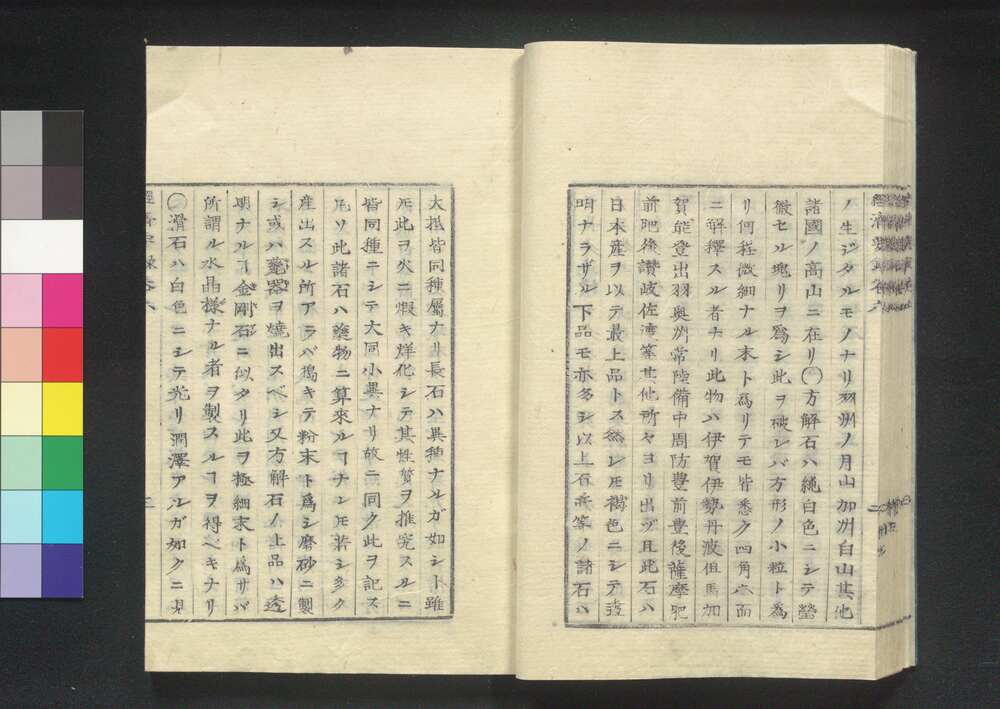 ノ生ジタルモノナリ羽州ノ月山加州白山其他
諸國ノ高山ニ在リ〇方解石ハ純白色ニシテ瑩
徹セル塊リヲ爲シ此ヲ破レバ方形ノ小粒ト為
リ何程微細ナル末ト爲リテモ皆悉ク四角六面
ニ解釋スル者ナリ此物ハ伊賀伊勢丹波但馬加
賀能登出羽奥州常陸備中周防豊前豊後薩摩肥
前肥後讃岐佐渡等其他所々ヨリ出ヅ且此石ハ
日本産ヲ以テ最上品トス然レ𪜈褐色ニシテ透
明ナラザル下品モ亦多シ以上石膏等ノ諸石ハ
大抵皆同種屬ナリ長石ハ異種ナルガ如シト雖
𪜈此ヲ火ニ煆キ烊化シテ其性質ヲ推究スルニ
皆同種ニシテ大同小異ナリ故ニ同ク此ヲ記ス
凡ソ此諸石ハ藥物ニ算來ルヿナレ𪜈若シ多ク
産出スル所アラバ搗キテ粉末ト爲シ磨砂ニ製
シ或ハ甆器ヲ燒出スベシ又方解石ノ上品ハ透
明ナルヿ金剛石ニ似タリ此ヲ極細末ト爲サバ
所謂ル水晶様ナル者ヲ製スルヿヲ得ベキナリ
〇滑石ハ白色ニシテ光リ潤澤アルガ如クニ見